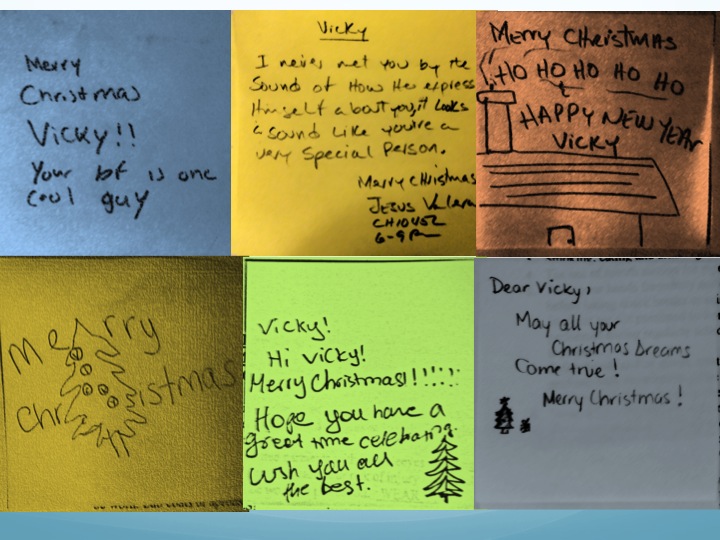 Merry
Christmas
Vicky!!
Your bf is one
cool guy
Vicky
I never met you by the
Sound of How He express
Himself about you, it Looks
& Sound Like you're a
very Special Person.
Merry Christmas
Jesus
CH10452
6-9pm
Merry Christmas
HO HO HO HO HO
HAPPY NEW YEAR
Vicky
Merry
Christmas
Vicky!
Hi Vicky!
Merry Christmas!!!!!!
Hope you have a
great time celebrating.
Wish you all
the best.
Dear Vicky,
May all your
Christmas Dreams
Come true!
Merry Christmas!